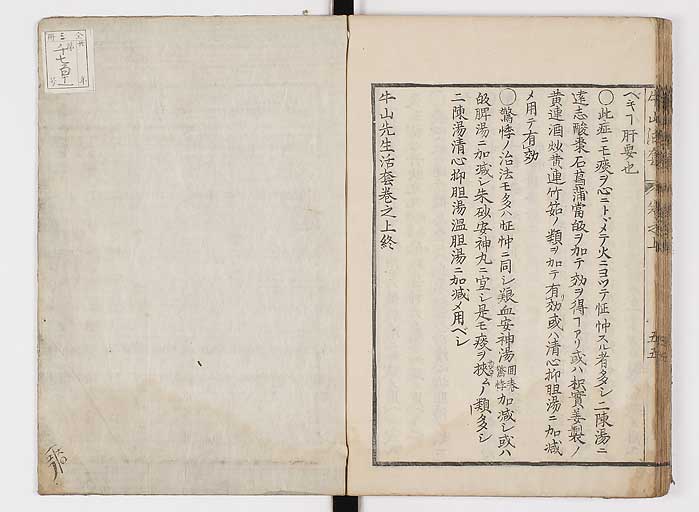 ベキヿ肝要也
○此症ニモ痰ヲ心ニトヾメテ火ニヨツテ怔忡スル者多シ二陳湯ニ
遠志酸棗石菖蒲當皈ヲ加テ効ヲ得ヿアリ或ハ枳實姜製ノ
黄連酒炒黄連竹茹ノ類ヲ加テ有効或ハ清心抑胆湯ニ加减
〆用テ有効
○驚悸ノ治法モ多ハ怔忡ニ同シ養血安神湯回春驚悸加减シ或ハ
皈脾湯ニ加减シ朱砂安神丸ニ宜シ是モ痰ヲ挾ムノ類多シ
二陳湯清心抑胆湯温胆湯ニ加减〆用ベシ
牛山先生活套巻之上終